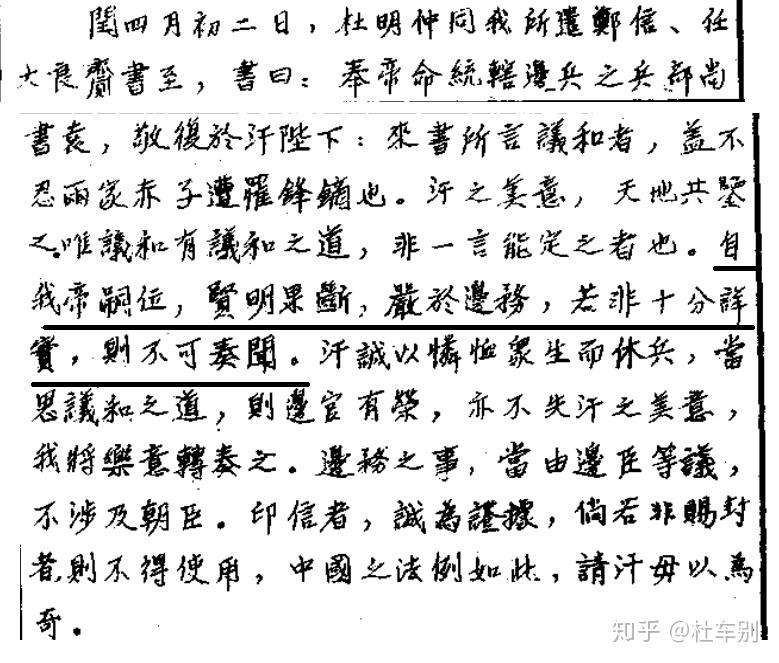 閏四月初二日，杜明仲同我所遣鄭信、任
大良齎書至，書曰：奉帝命統轄邊兵之兵部尚
書袁，敬復於汗陛下：來書所言議和者，蓋不
忍兩家赤子遭罹鋒鏑也。汗之美意，天地共鑒
之。唯議和有議和之道，非一言能定之者也。自
我帝嗣位，賢明果斷，嚴於邊務，若非十分詳
實，則不可奏聞。汗誠以憐恤衆生而休兵，當
思議和之道，則邊官有榮，亦不失汗之美意，
我將樂意轉奏之。邊務之事，當由邊臣等議，
不涉及朝臣。印信者，誠為謹據，倘若非賜封
者，則不得使用，中國之法例如此，請汗毋以為
奇。
知乎 @杜车别